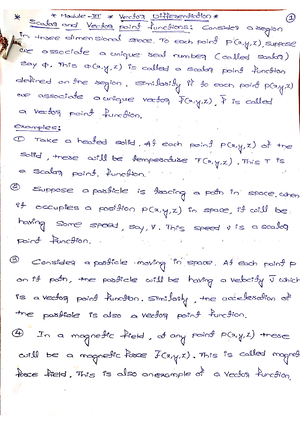 * Module-III * Vector Differentiation * ①
Scalar and Vector point functions: Consider a region
in three dimensional space. To each point P(x,y,z), suppose
we associate a unique real number (called scalar)
say φ. This φ(x,y,z) is called a scalar point function
defined on the region. Similarly if to each point p(x,y,z)
we associate a unique vector f̄(x,y,z), f̄ is called
a vector point function.
Examples:
① Take a heated solid. At each point p(x,y,z) of the
solid, there will be temperature T(x,y,z). This T is
a scalar point function.
② Suppose a particle is tracing a path in space, when
it occupies a position p(x,y,z) in space, it will be
having some speed, say, v. This speed v is a scalar
point function.
③ Consider a particle moving in space. At each point p
on it path, the particle will be having a velocity v̄ which
is a vector point function. Similarly, the acceleration of
the particle is also a vector point function.
④ In a magnetic field, at any point p(x,y,z) there
will be a magnetic force f̄(x,y,z). This is called magnet
force field. This is also an example of a vector function.